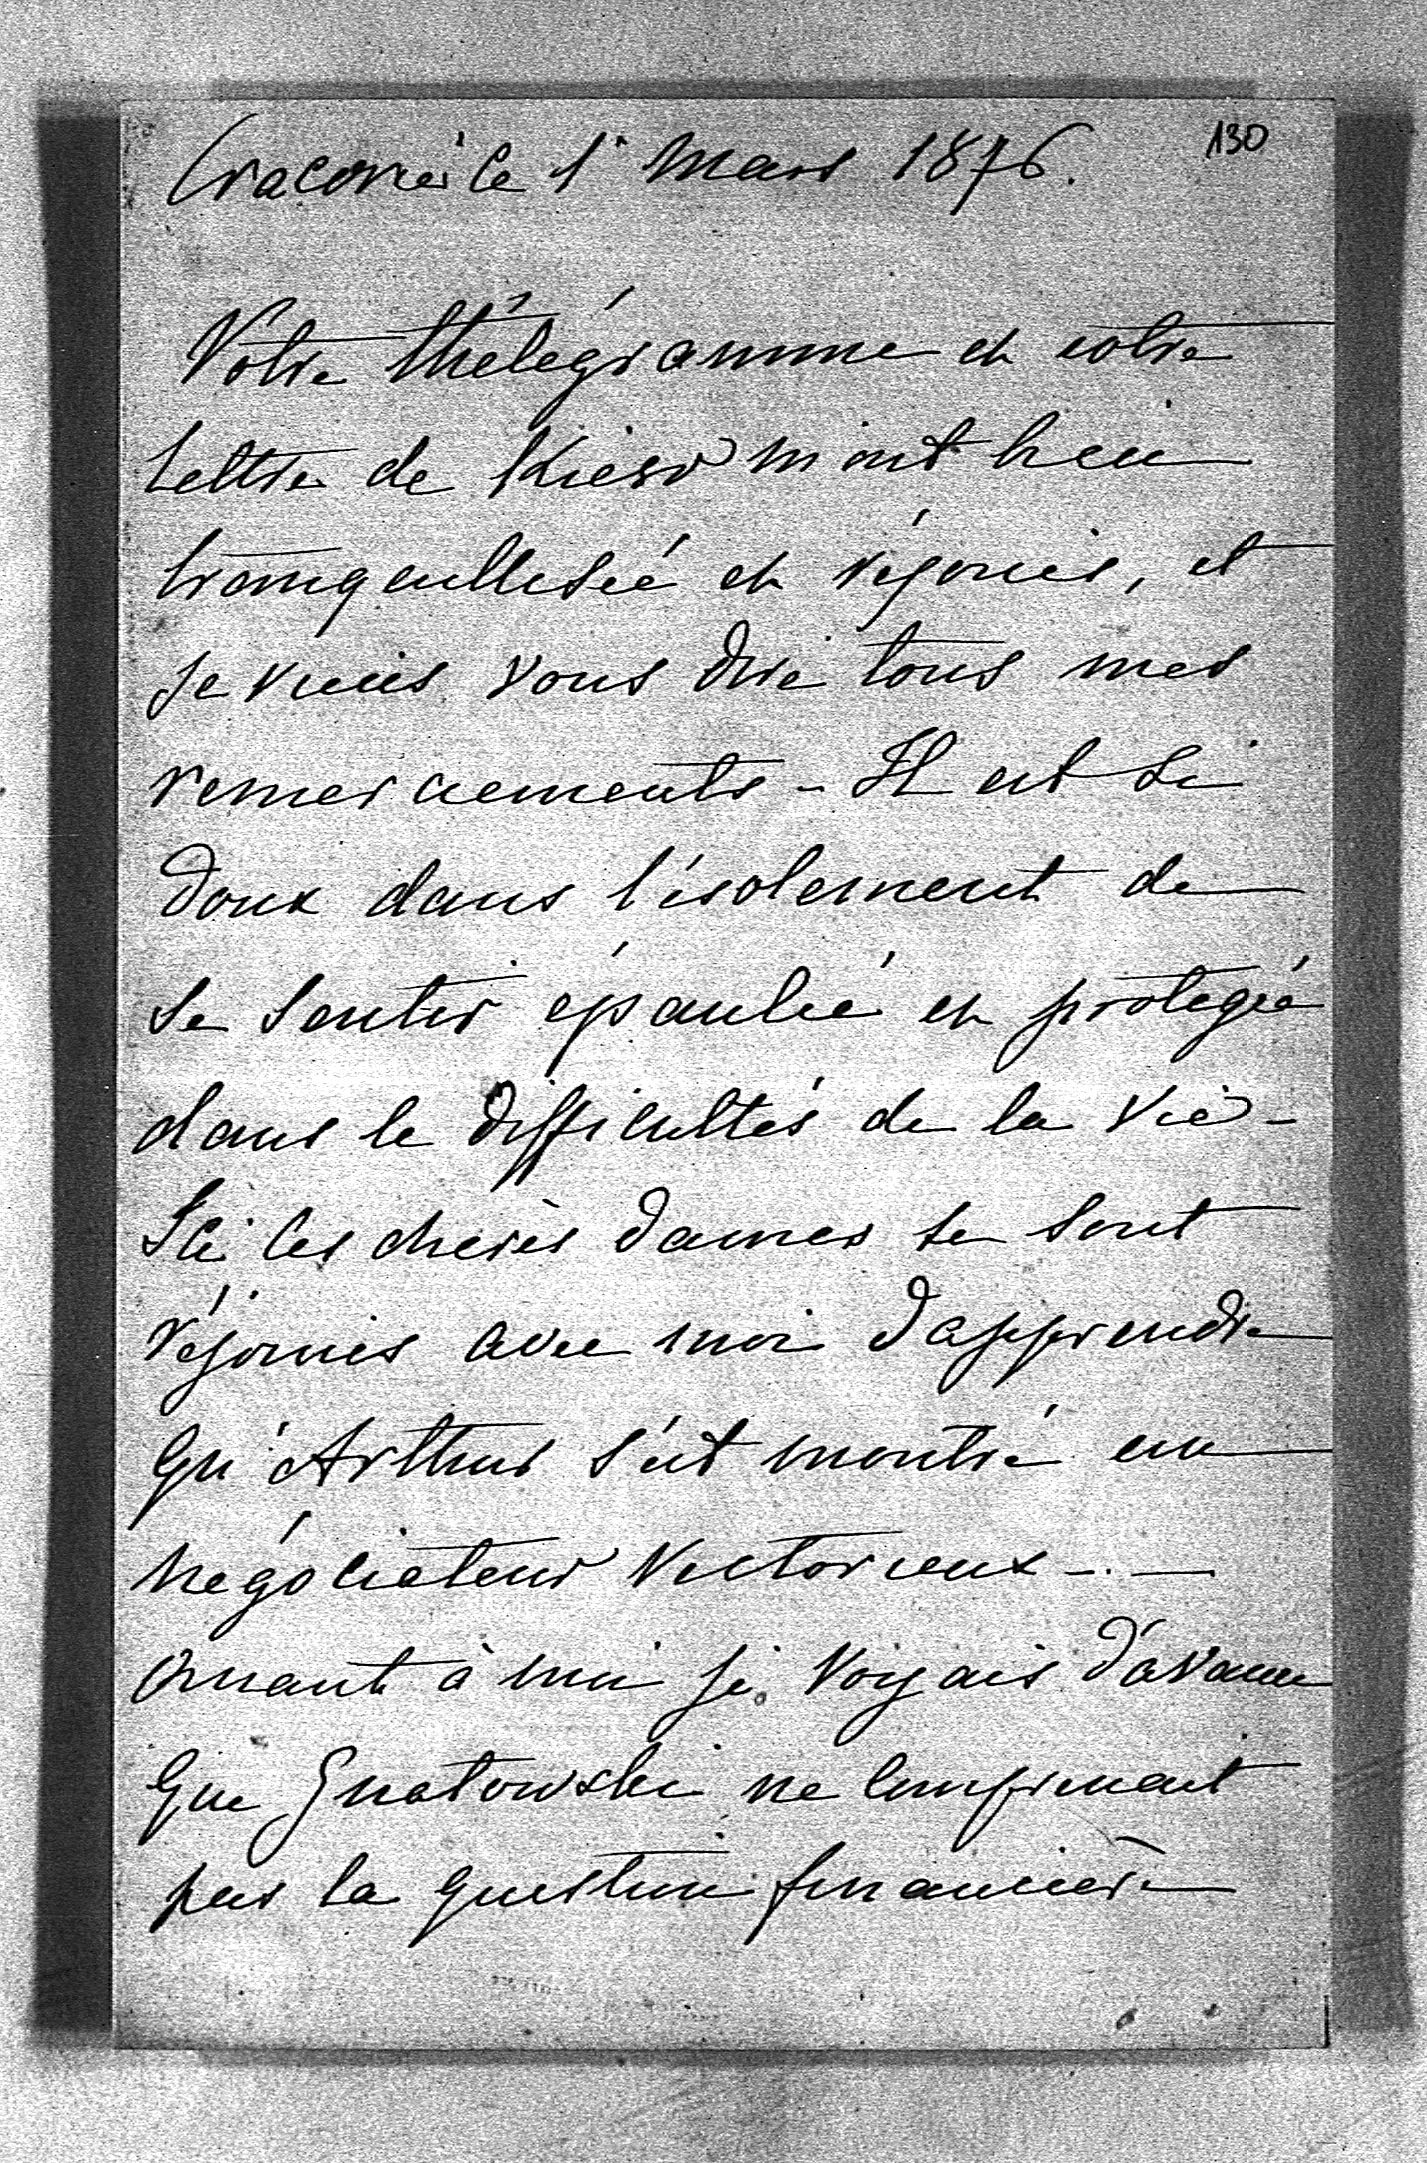 130
Cracovie le 1 Mars 1876.
Votre thélégramme et votre
lettre de Kiew m'ont bien
tranquellisée et réjouis, et
je viens vous dire tous mes
remerciements - Il est si
doux dans l'isolement de
se sentir épaulée et protégée
dans le difficultés de la vie -
Ici les chères dames se sont
réjouies avec moi d'apprendre
qu'Arthur s'est montré un
négociateur victorieux - . —
Quant à moi je voyais d'avance
que Gnatowski ne comprenait
pas la question financière